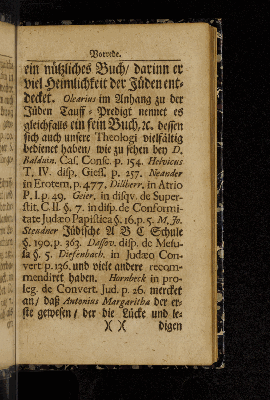 Vorrede.
ein nützliches Buch/ darinn er
viel Heimlichkeit der Jüden ent-
decket. Olearius im Anhang zu der
Jüden Tauff-Predigt nennet es
gleichfalls ein fein Buch, &c. dessen
sich auch unsere Theologi vielfältig
bedienet haben/ wie zu sehen bey D.
Balduin. Caſ. Conſc. p. 154. Helvicus
T. IV. diſp. Gieſſ. p. 257. Neander
in Erotem, p. 477. Dilherr. in Atrio
P. I. p. 49. Geier. in diſqv. de Super-
ſtit. C. II §. 7. in diſp. de Conformi-
tate Judæo Papiſtica §. 16. p. 5. M. Jo.
Steudner Jüdische A B C Schule
§. 190. p. 363. Daſſov. diſp. de Meſu-
ſa §. 5. Diefenbach. in Judæo Con-
vert p. 136. und viele andere recom-
mendiret haben. Hornbeck in pro-
leg. de Convert. Jud. p. 26. mercket
an/ daß Antonius Margaritha der er-
ste gewesen/ der die Lücke und le-
)( )( digen